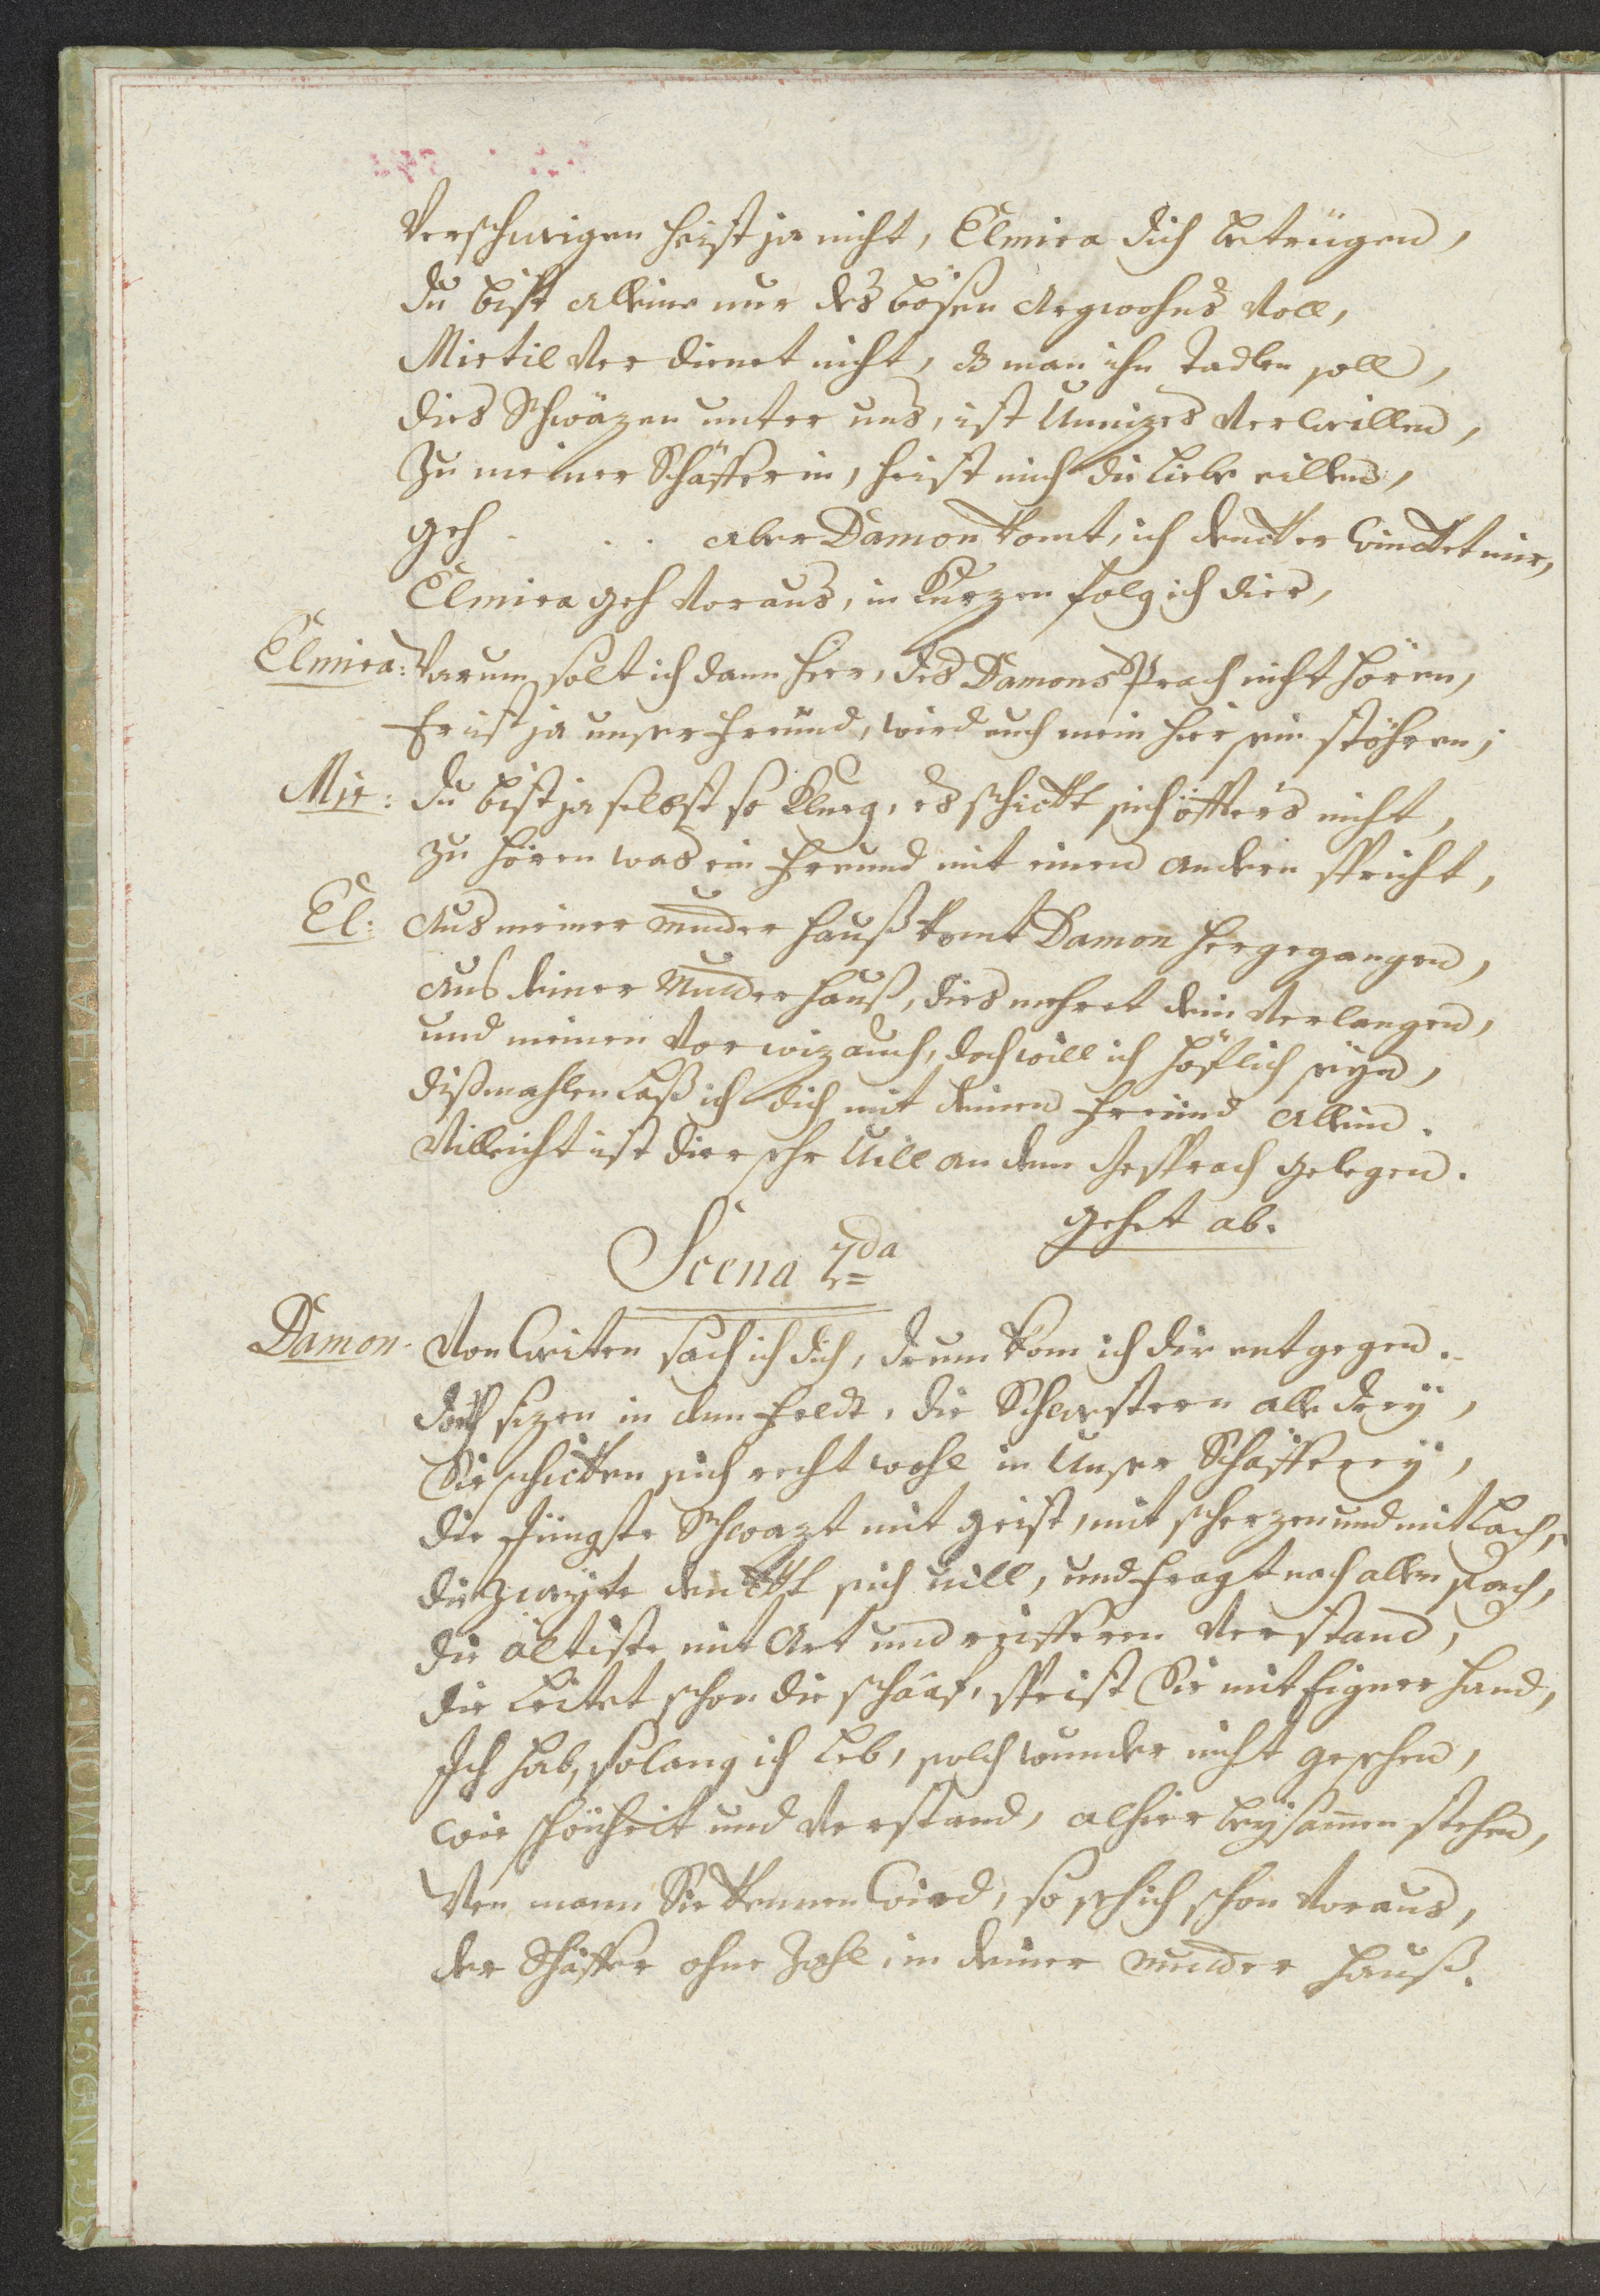 Verschweigen heist ja nicht, Elmira dich betrügen,
du bist alleine nur des bösen Argwohns Voll,
Mirtil Verdienet nicht, dß man ihn tadlen soll,
dies Schwäzen unter uns, ist Unnizes Verweillen,
Zu meiner Schäfferin, heist mich die Liebe eillen,
geh . . . aber Damon komt, ich denck er wincket mir,
Elmira geh Voraus, in Kurzen folg ich dier,
Elmira: Warum solt ich dann hier, des Damons Sprach nicht hören,
Er ist ja unser Freund, wird euch mein hier sein stöhren;
Mir: du bist ja selbst so Klueg, es schickt sich öffters nicht,
zu hören was ein Freund mit einen anderen spricht,
El: Aus meiner Mutter Hauß komt Damon hergegangen,
Aus deiner Mutter Hauß, dies mehret dein Verlangen,
und meinen Vorwiz auch, doch will ich höflich seyn,
dißmahlen laß ich dich mit deinen Freund allein.
Villeicht ist dier sehr Vill an dem Gesprach gelegen.
gehet ab.
Scena 2da
Damon. Von weiten sach ich dich, drum kom ich dir entgegen.
dort sizen in dem Feldt, die Schwestern alle drey,
Sie schicken sich recht wohl in Unser Schäfferey,
die Jüngste Schwazt mit geist, mit scherzen und mit Lach,
die zweyte denckt sich vill, und fragt nach allen Sach,
die ältiste mit Art und reifferen Verstand,
die Leitet schon die schääf, speist Sie mit Eigner Hand,
Ich hab, solang ich Leb, solch wunder nicht gesehen,
wie schönheit und Verstand, alhier beysam̄en stehen,
Wen mann Sie kennen wird, so seh ich schon Voraus,
der Schäffer ohne Zahl, in deiner Mutter Hauß.
REY. SIMON.